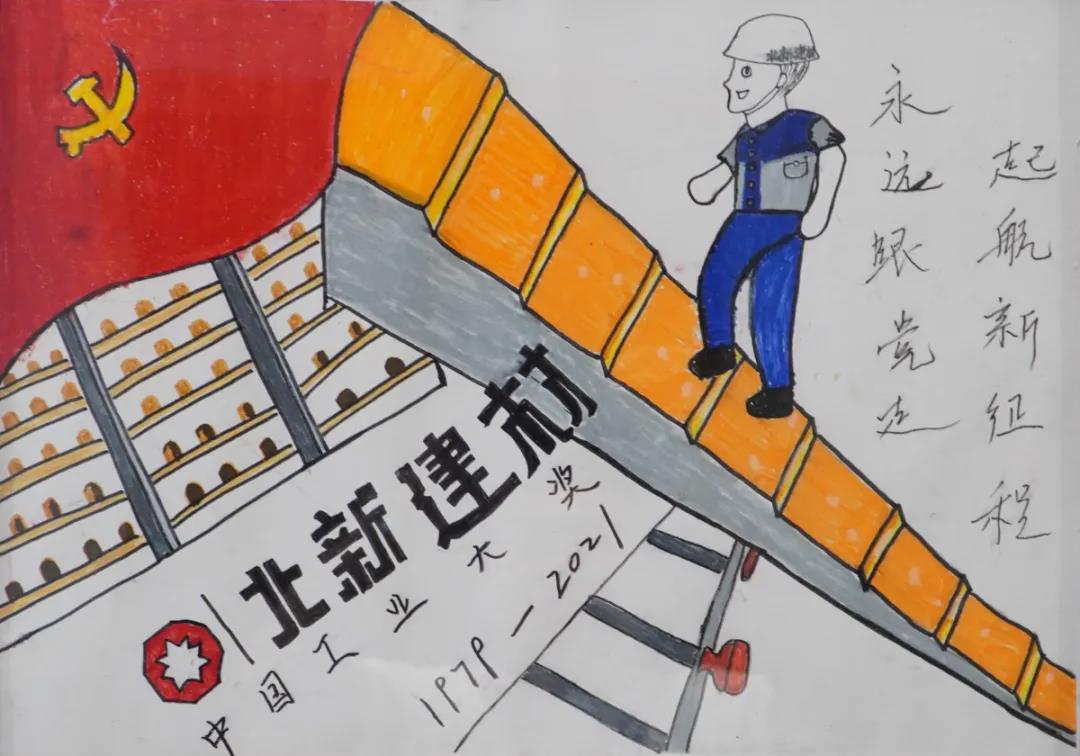 北新建材
永远跟党走
起航新征程
北新建材
中国工业大奖
1979—2021